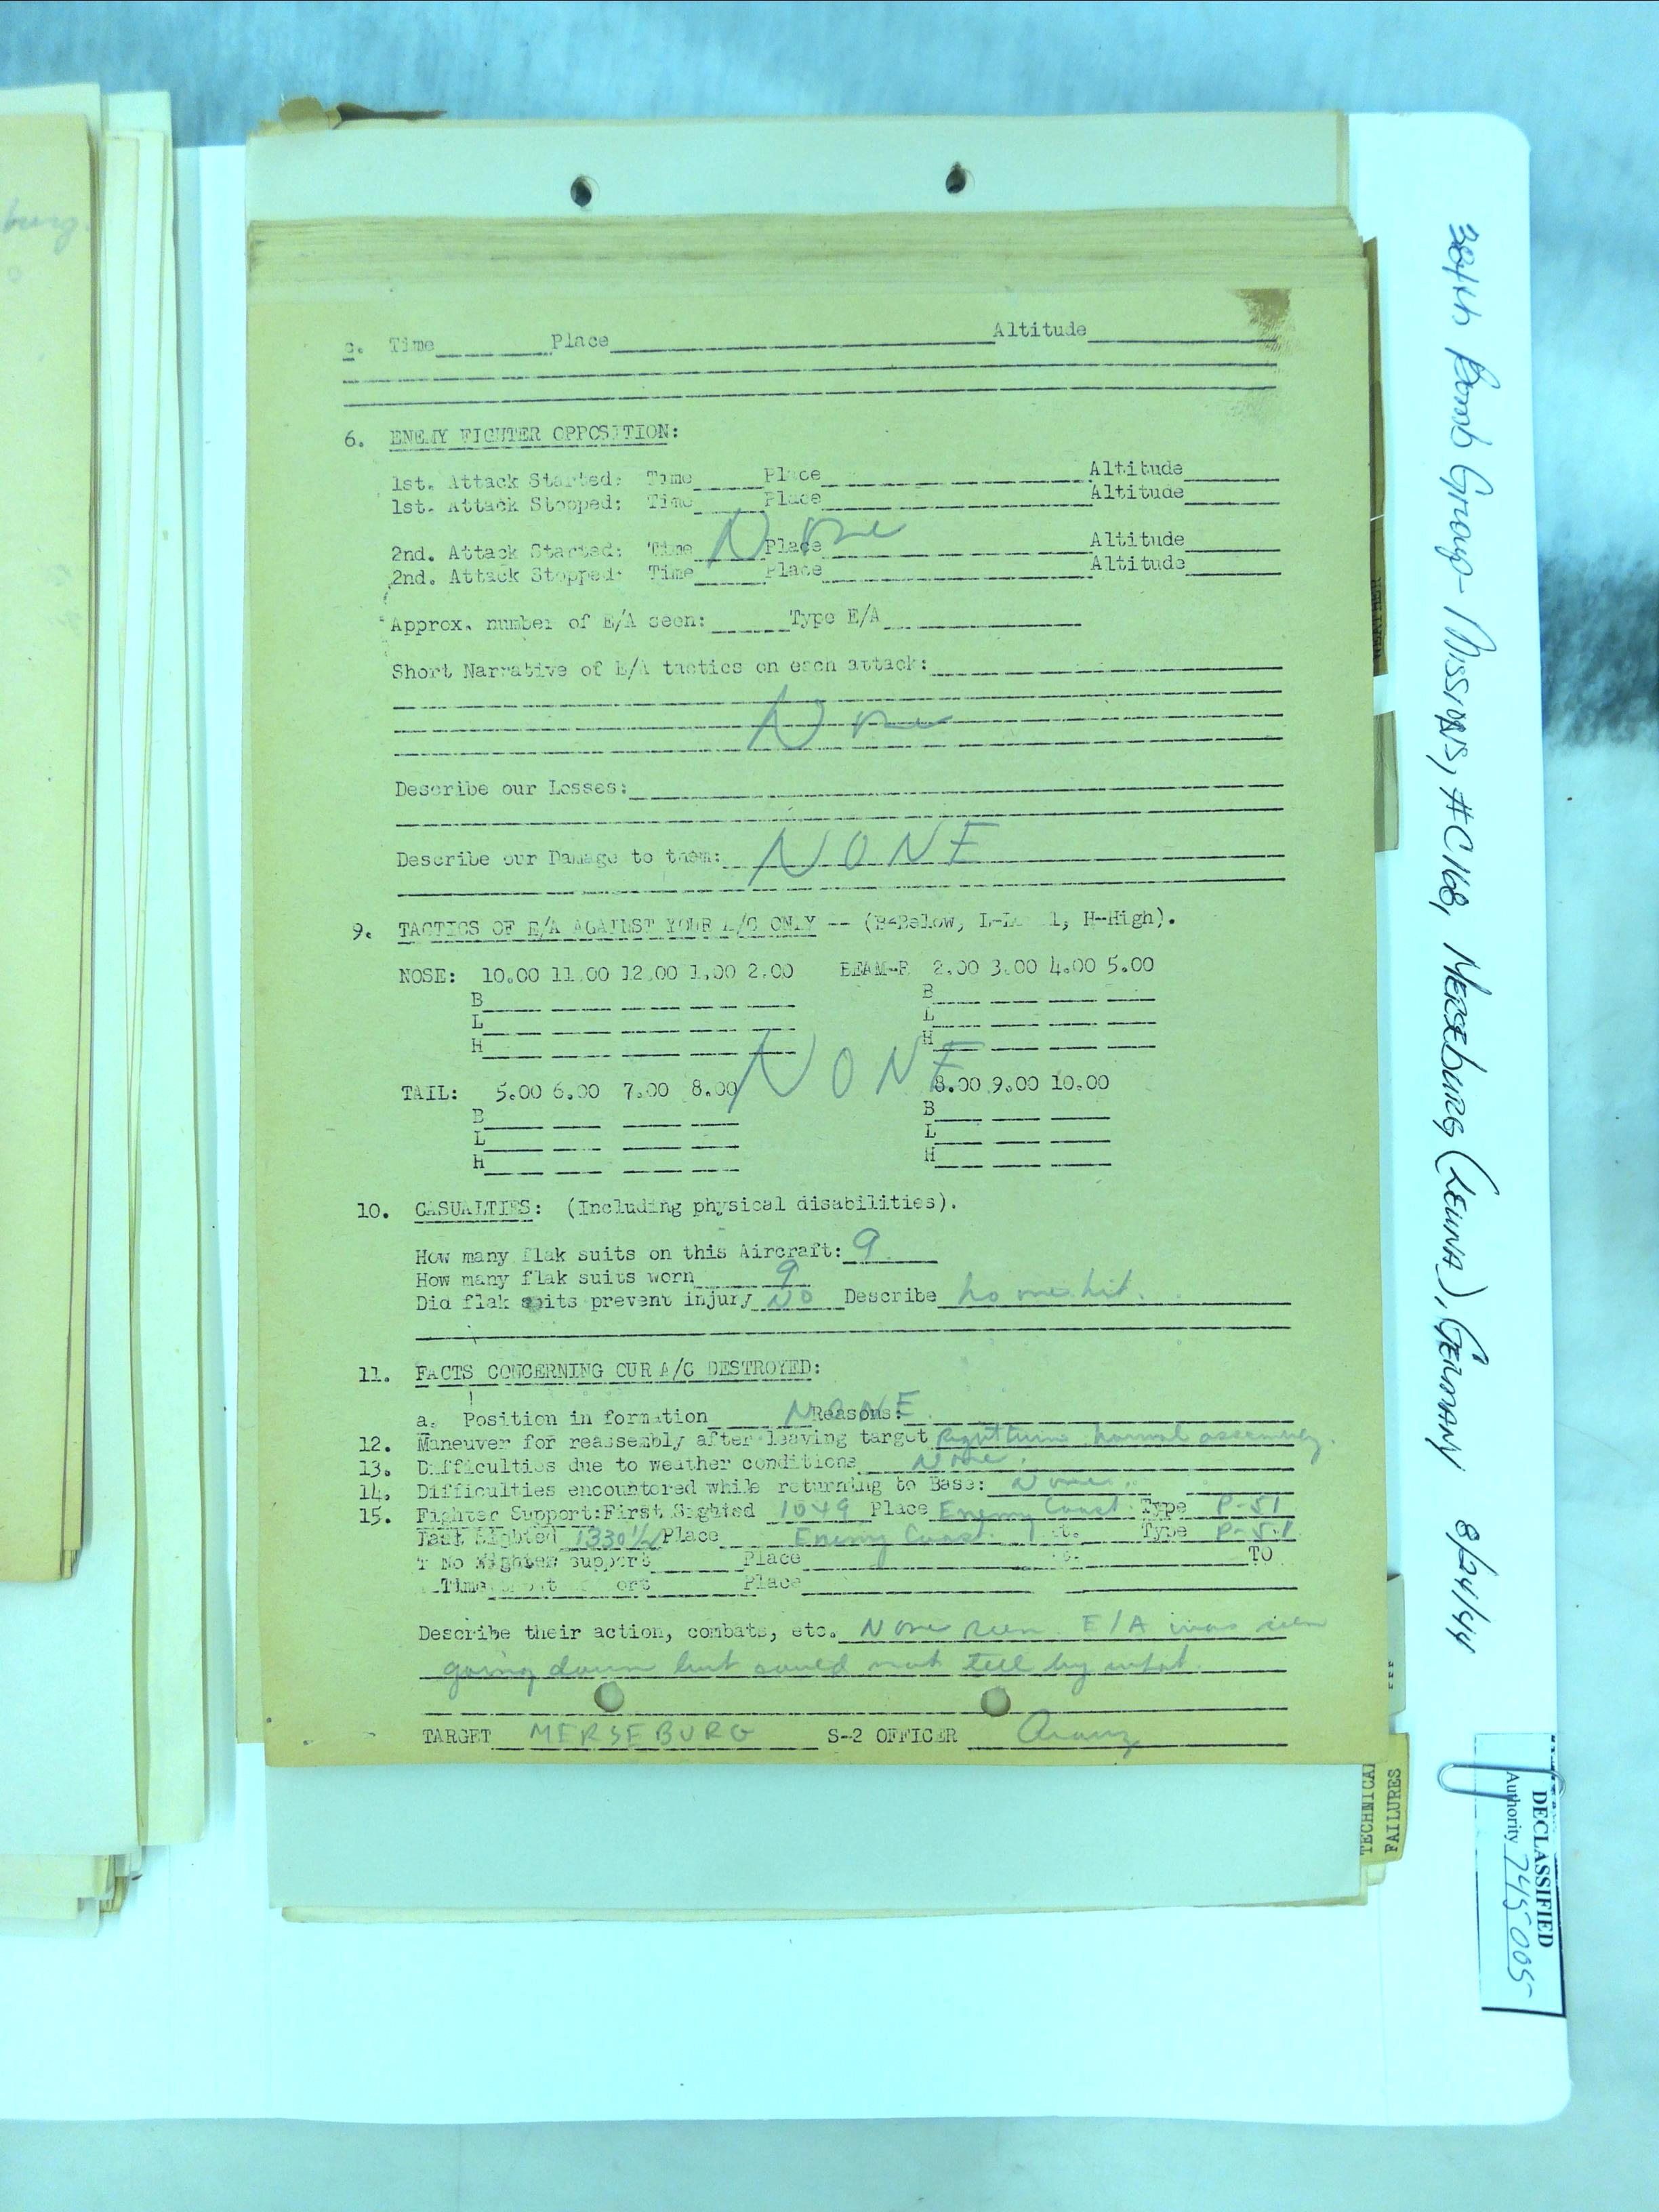 c. Time Place Altitude
6. ENEMY FIGHTER OPPOSITION:
1st. Attack Started: Time Place Altitude
1st. Attack Stopped: Time Place Altitude
None
2nd. Attack Started: Time Place Altitude
2nd. Attack Stopped: Time Place Altitude
Approx. number of E/A seen: Type E/A
Short Narrative of E/A tactics on each attack:
None
Describe our Losses:
Describe our Damage to them: NONE
9. TACTICS OF E/A AGAINST YOUR A/C ONLY -- (B-Below, L-L l, H-High).
NOSE: 10.00 11.00 12.00 1.00 2.00 BEAM-R 2.00 3.00 4.00 5.00
B B
L L
H H
NONE
TAIL: 5.00 6.00 7.00 8.00 8.00 9.00 10.00
B B
L L
H H
10. CASUALTIES: (Including physical disabilities).
How many flak suits on this Aircraft: 9
How many flak suits worn 9
Did flak suits prevent injury NO Describe no one hit.
11. FACTS CONCERNING OUR A/C DESTROYED:
a. Position in formation NONE Reasons:
12. Maneuver for reassembly after leaving target Right turn normal assembly.
13. Difficulties due to weather conditions None.
14. Difficulties encountered while returning to Base: None.
15. Fighter Support: First Sighted 1049 Place Enemy Coast. Type P-51
Last Sighted 1330½ Place Enemy Coast. Type P-51
No Fighter support Place TO
Time Place
Describe their action, combats, etc. None seen. E/A was seen
going down but could not tell by what
TARGET MERSEBURG S-2 OFFICER
384th Bomb Group - Missions, #C168, MERSEBURG (LEUNA), GERMANY 8/24/44
WEATHER
TECHNICAL
FAILURES
DECLASSIFIED
Authority 745005